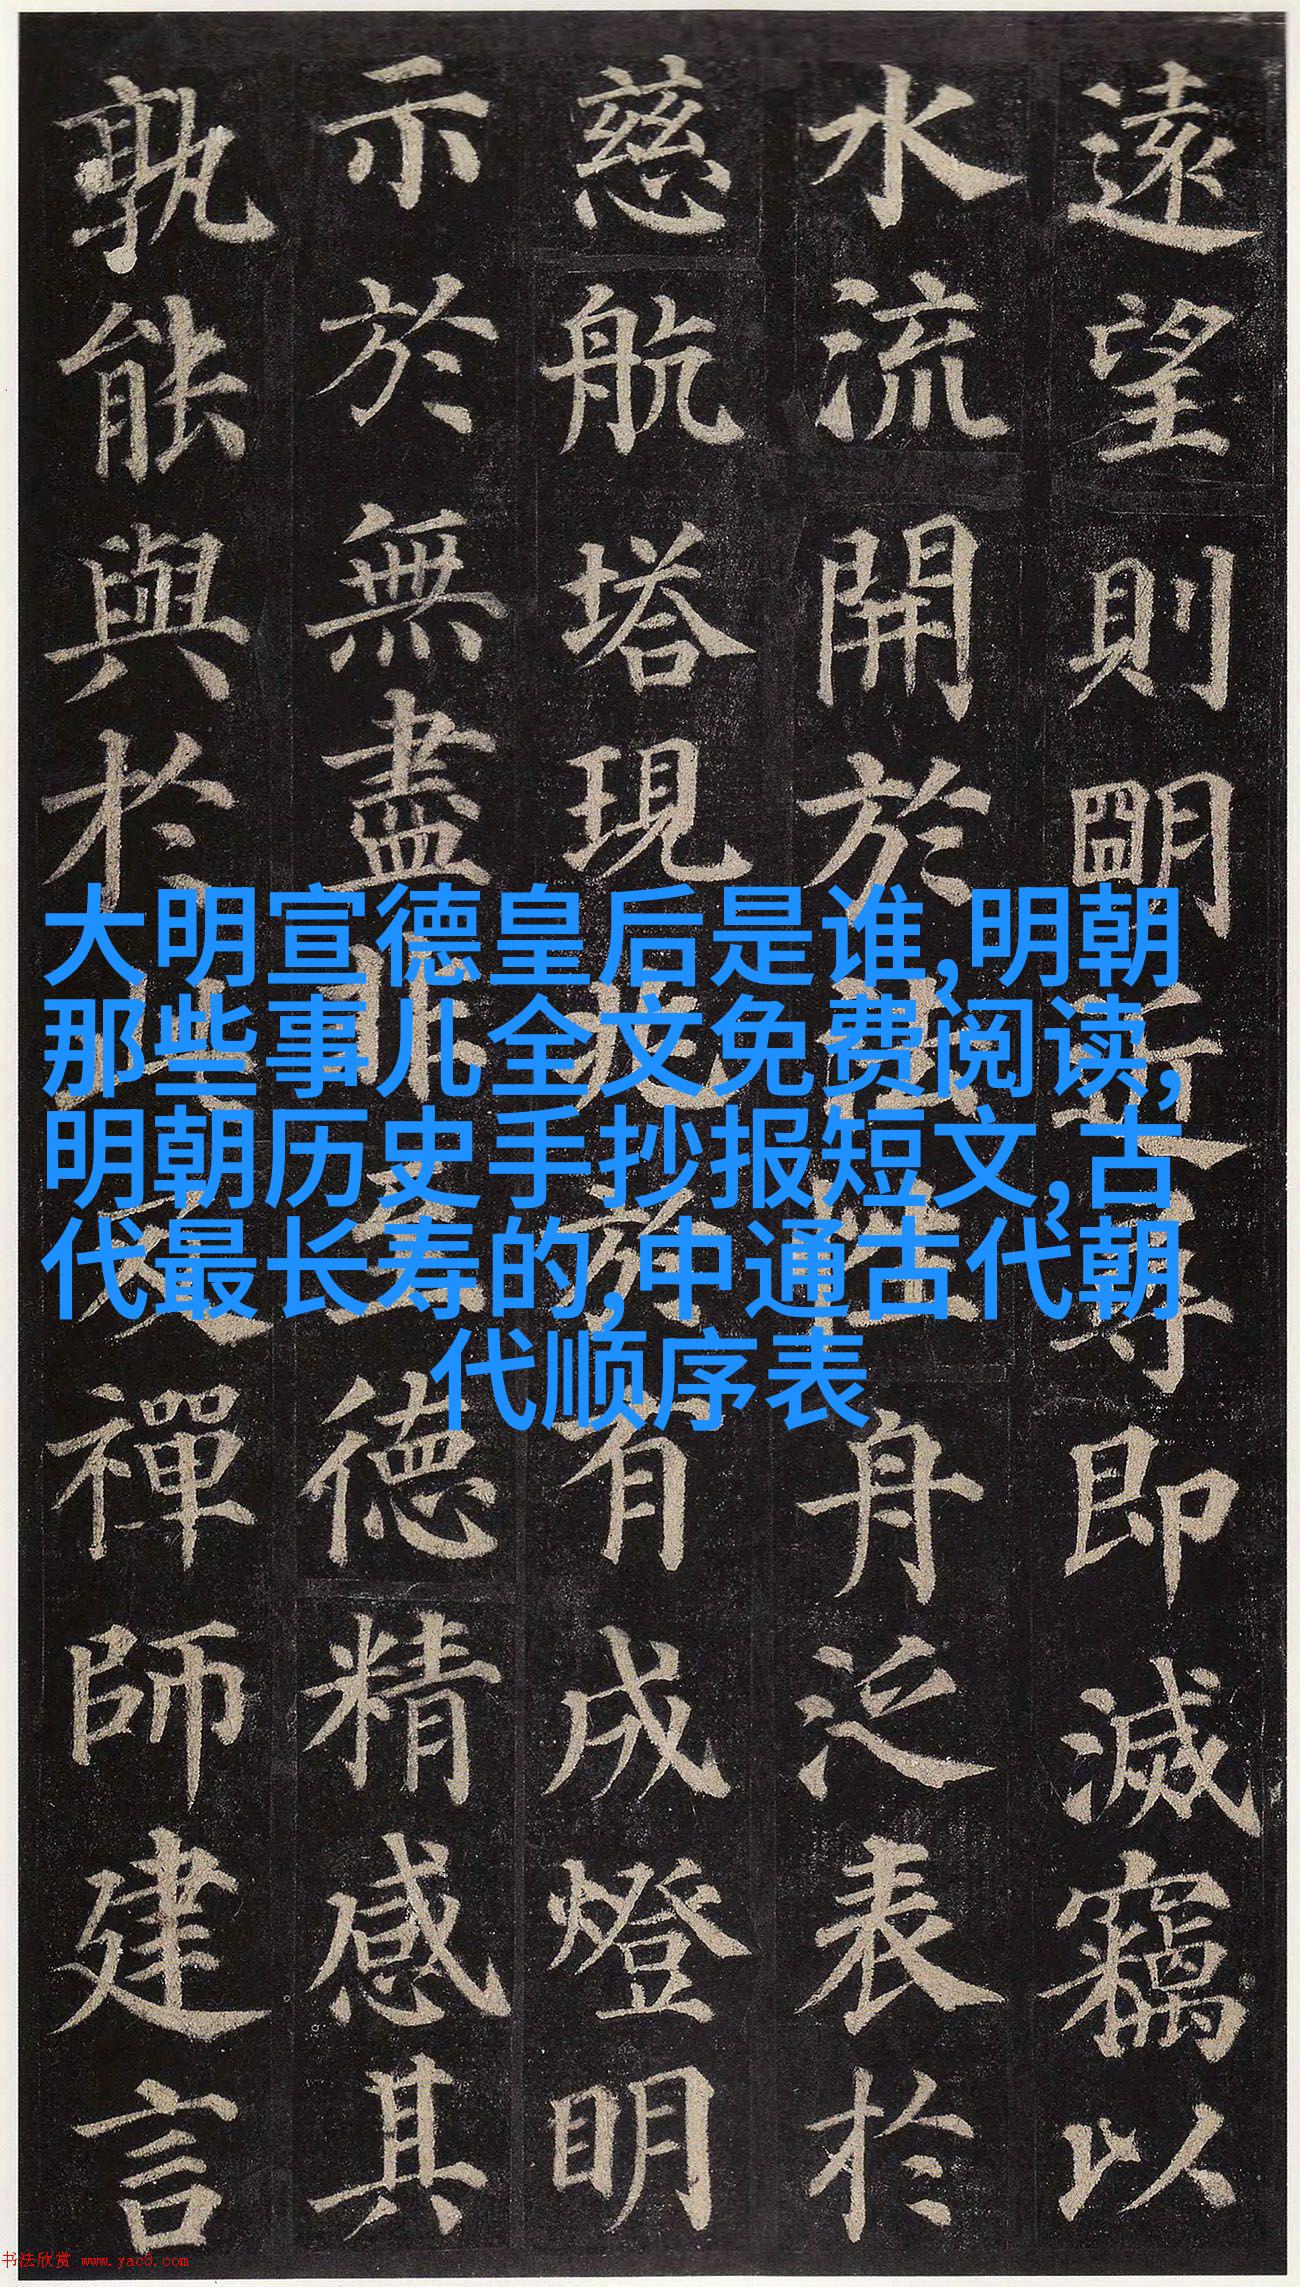 遠望則朙近尋即滅竊以
水流開於法性舟泛表於
慈航塔現兆於有成燈明
示於無盡非至德精感其
孰能與於此及禪師建言
大明宣德皇后是谁,明朝
那些事儿全文免费阅读,
明朝历史手抄报短文,古
代最长寿的,中通古代朝
代顺序表
书法欣赏 www.yac8.com